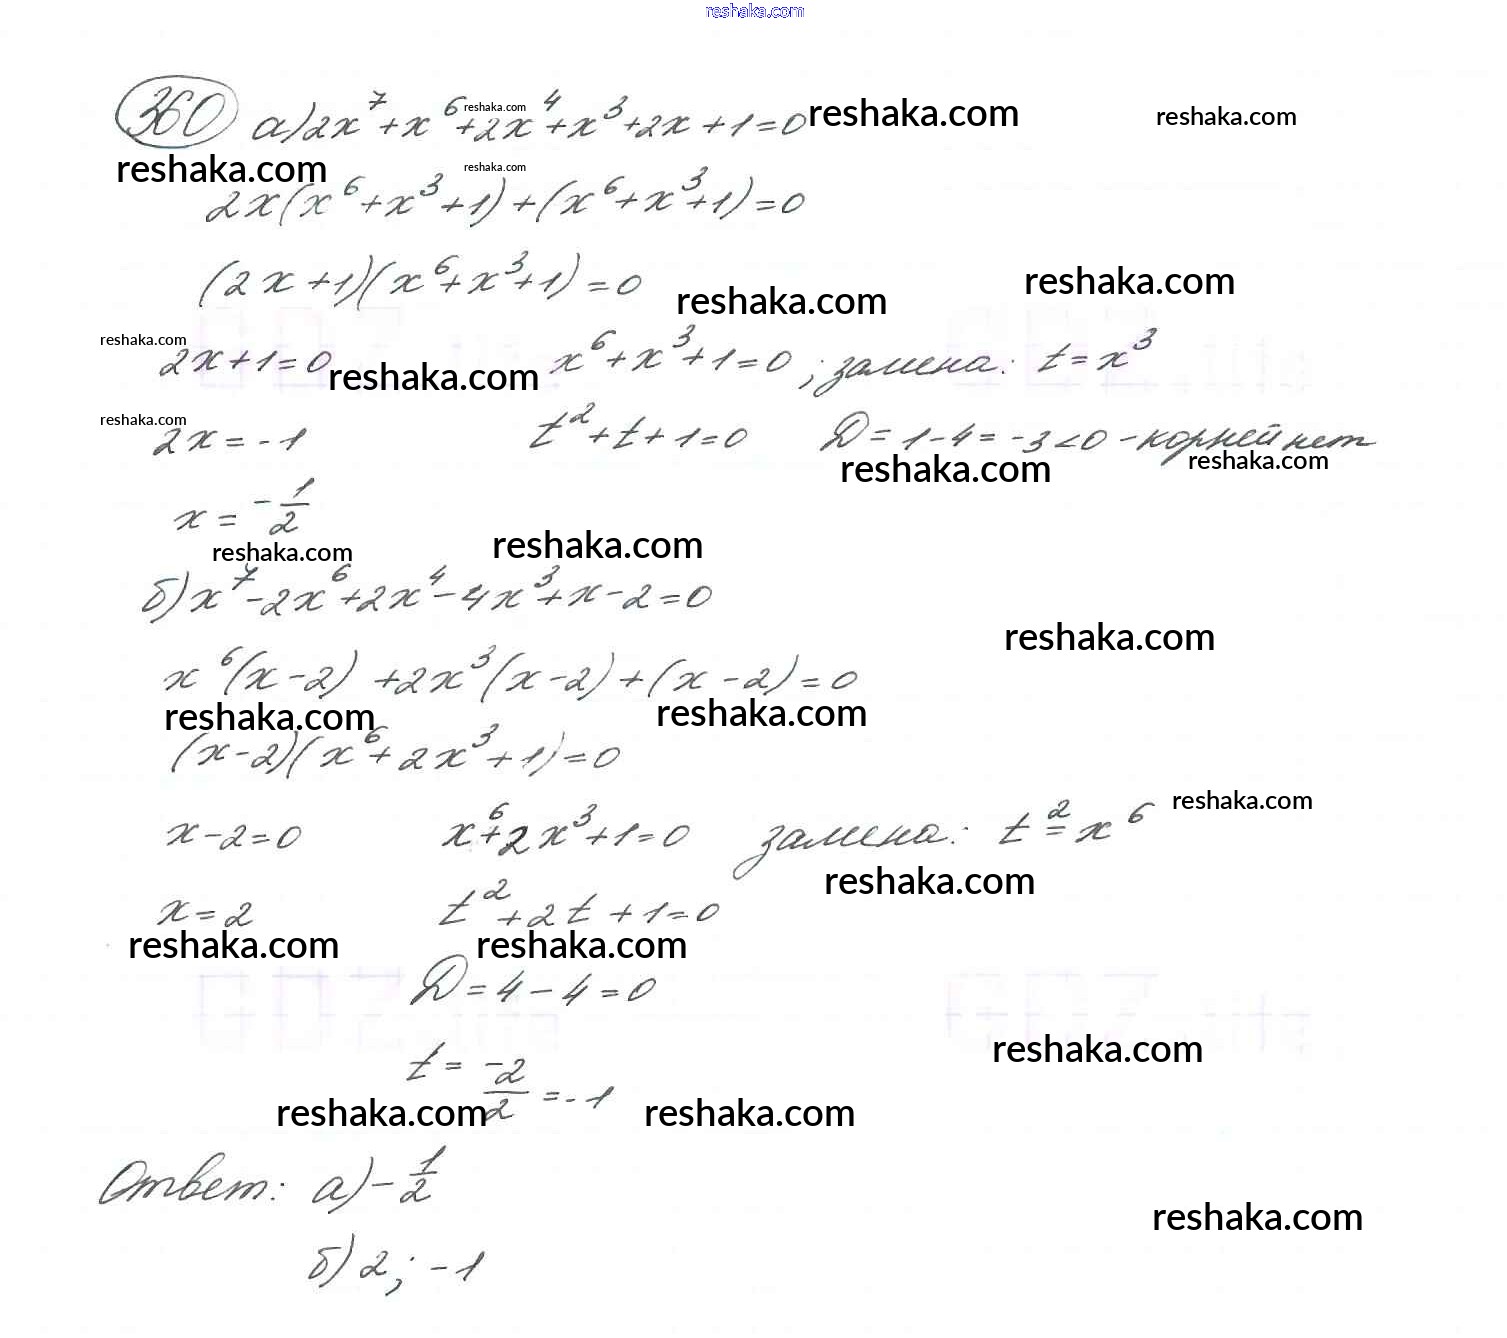 reshaka.com
360 а) 2x⁷+x⁶+2x⁴+x³+2x+1=0 reshaka.com reshaka.com reshaka.com
reshaka.com reshaka.com
2x(x⁶+x³+1)+(x⁶+x³+1)=0
(2x+1)(x⁶+x³+1)=0 reshaka.com reshaka.com
reshaka.com
2x+1=0 reshaka.com x⁶+x³+1=0 ; замена: t=x³
reshaka.com
2x=-1 t²+t+1=0 D=1-4=-3<0 - корней нет
reshaka.com reshaka.com
x=-1/2
reshaka.com reshaka.com
б) x⁷-2x⁶+2x⁴-4x³+x-2=0
reshaka.com
x⁶(x-2)+2x³(x-2)+(x-2)=0
reshaka.com reshaka.com
(x-2)(x⁶+2x³+1)=0
reshaka.com
x-2=0 x⁶+2x³+1=0 замена: t²=x⁶
reshaka.com
x=2 t²+2t+1=0
reshaka.com reshaka.com
D=4-4=0
GDZ.life GDZ.life
reshaka.com
t=-2/2=-1
reshaka.com reshaka.com
Ответ: а) -1/2
reshaka.com
б) 2; -1